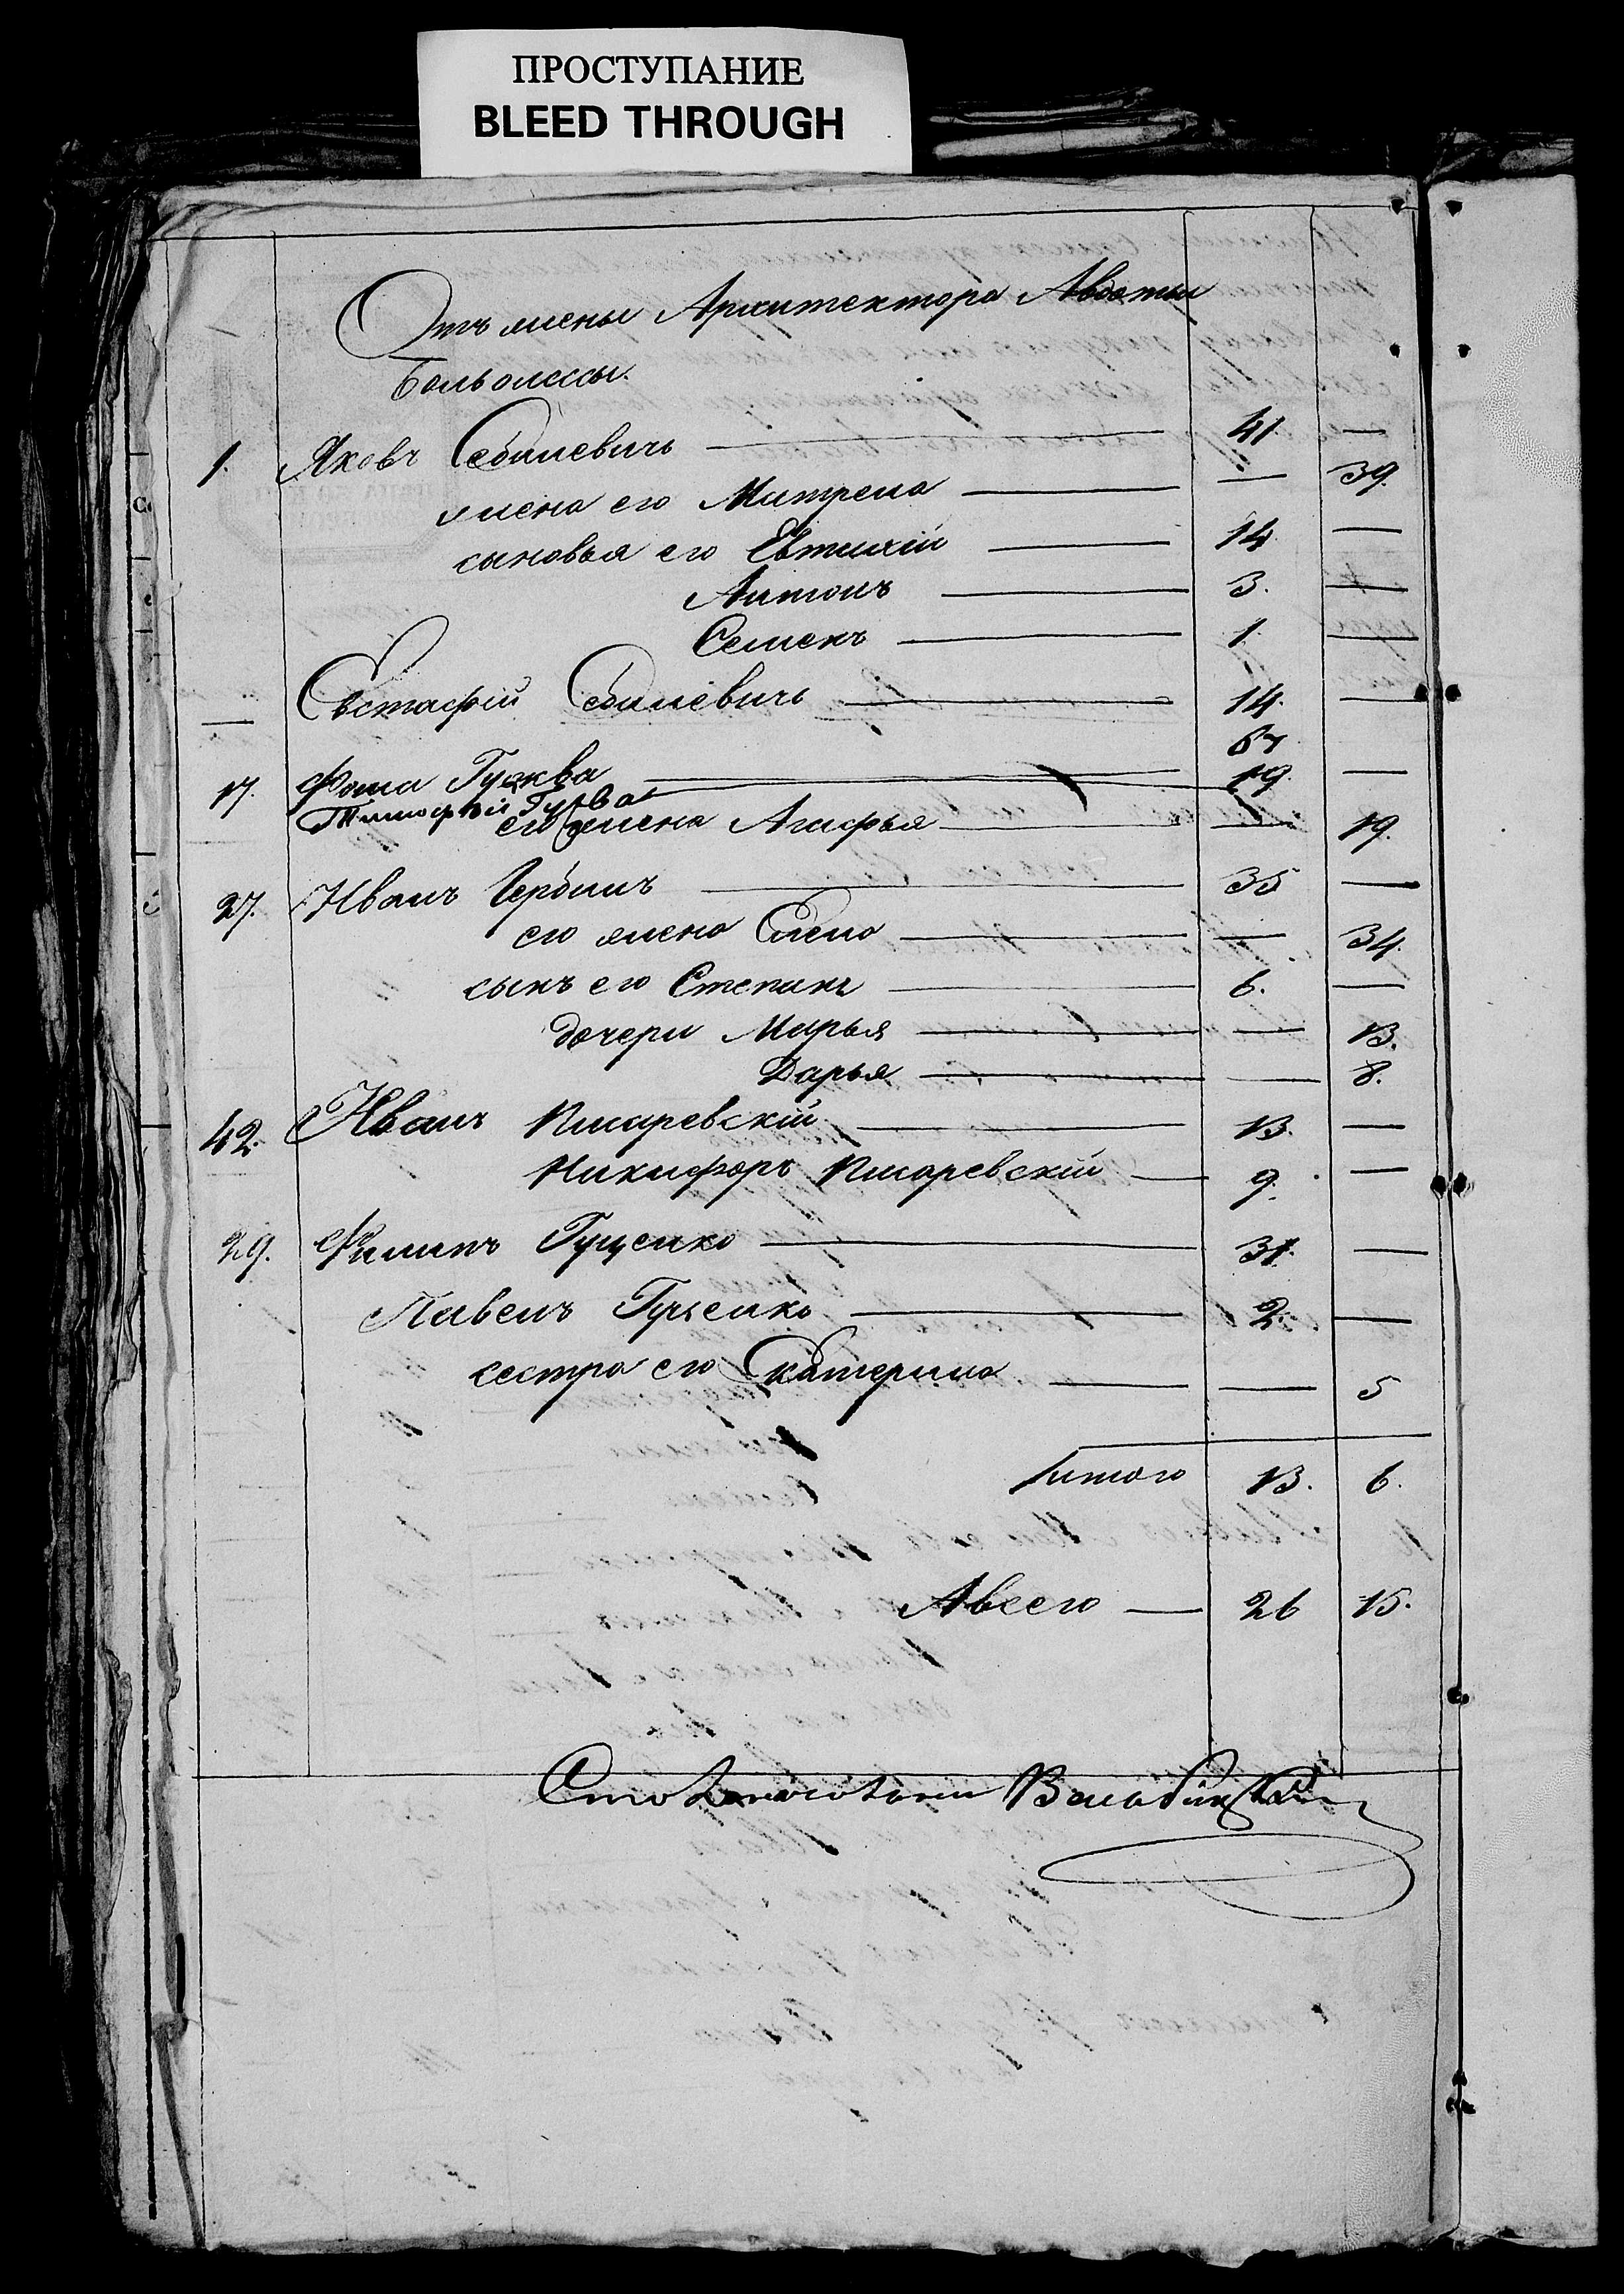 ПРОСТУПАНИЕ
BLEED THROUGH
Отъ жены Архитектора Авдотьи
1. Яковъ 41. —
жена его Матрена — 39.
сыновья его Евтихій 14 —
Антонъ 3. —
Семенъ 1. —
— Евстафій 14. —
67
17. Фома Гуяква 19. —
Тимофей
его жена Агафья — 19.
27. Иванъ 35 —
его жена Елена — 34.
сынъ его Степанъ 6. —
дочери Марья — 13.
Дарья — 8.
42. Иванъ Писаревскій 13. —
Никифоръ Писаревскій 9. —
29. Филипъ Гуценко 31. —
Павелъ Гуценко 2. —
сестра его Екатерина — 5
Итого 13. 6.
А всего — 26 15.